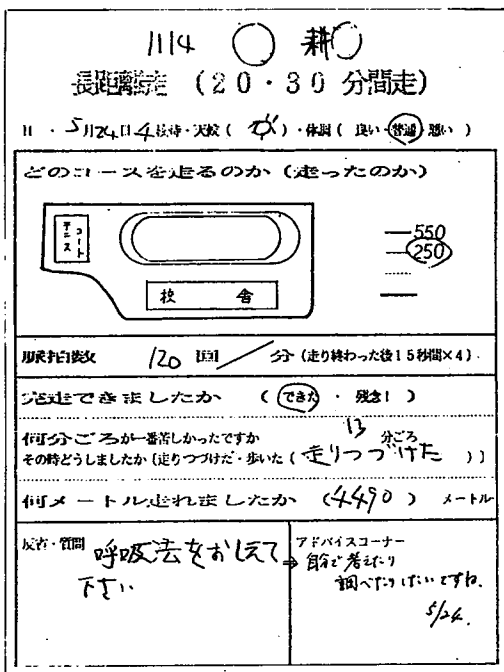 1114 ○ 耕○
長距離走 (20・30分間走)
日・5月24日・4校時・天候( )・体調( 良い・普通・悪い )
どのコースを走るのか(走ったのか)
テニス
コート
校舎
550
250
脈拍数 120 回/分(走り終わった後15秒間×4)
完走できましたか (できた・残念!)
何分ごろが一番苦しかったですか 13 分ごろ
その時どうしましたか(走りつづけた・歩いた(走りつづけた))
何メートル走れましたか (4490) メートル
反省・質問
呼吸法をおしえて
下さい
アドバイスコーナー
⇒自分で考えたり
調べたりしたいですね.
5/24.